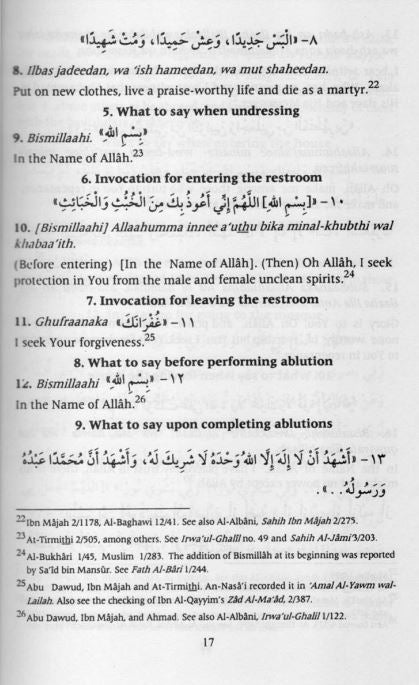 ٨- «الْبَسْ جَدِيدًا، وَعِشْ حَمِيدًا، وَمُتْ شَهِيدًا»
8. Ilbas jadeedan, wa 'ish hameedan, wa mut shaheedan.
Put on new clothes, live a praise-worthy life and die as a martyr.22
5. What to say when undressing
9. Bismillaahi. «بِسْمِ اللهِ»
In the Name of Allâh.23
6. Invocation for entering the restroom
١٠- «[بِسْمِ اللهِ] اللَّهُمَّ إِنِّي أَعُوذُ بِكَ مِنَ الْخُبُثِ وَالْخَبَائِثِ»
10. [Bismillaahi] Allaahumma innee a'uthu bika minal-khubthi wal
khabaa'ith.
(Before entering) [In the Name of Allâh]. (Then) Oh Allâh, I seek
protection in You from the male and female unclean spirits.24
7. Invocation for leaving the restroom
11. Ghufraanaka ١١- «غُفْرَانَكَ»
I seek Your forgiveness.25
8. What to say before performing ablution
12. Bismillaahi ١٢- «بِسْمِ اللهِ»
In the Name of Allâh.26
9. What to say upon completing ablutions
١٣- «أَشْهَدُ أَنْ لَا إِلَهَ إِلَّا اللهُ وَحْدَهُ لَا شَرِيكَ لَهُ، وَأَشْهَدُ أَنَّ مُحَمَّدًا عَبْدُهُ
وَرَسُولُهُ...».
22 Ibn Mâjah 2/1178, Al-Baghawi 12/41. See also Al-Albâni, Sahih Ibn Mâjah 2/275.
23 At-Tirmithi 2/505, among others. See Irwa'ul-Ghalil no. 49 and Sahih Al-Jâmi' 3/203.
24 Al-Bukhâri 1/45, Muslim 1/283. The addition of Bismillâh at its beginning was reported
by Sa'îd bin Mansûr. See Fath Al-Bâri 1/244.
25 Abu Dawud, Ibn Mâjah and At-Tirmithi. An-Nasâ'i recorded it in 'Amal Al-Yawm wal-
Lailah. Also see the checking of Ibn Al-Qayyim's Zâd Al-Ma'âd, 2/387.
26 Abu Dawud, Ibn Mâjah, and Ahmad. See also Al-Albâni, Irwa'ul-Ghalil 1/122.
17